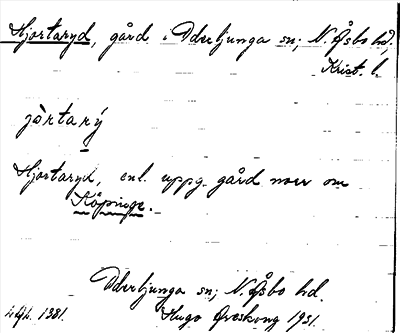 Hjortaryd, gård i Oderljunga sn; N. Åsbo hd,
Krist. l.
jòrtarý
Hjortaryd, enl. uppg. gård norr om
Köpinge.
Oderljunga sn; N. Åsbo hd.
Hugo Areskoug 1931.